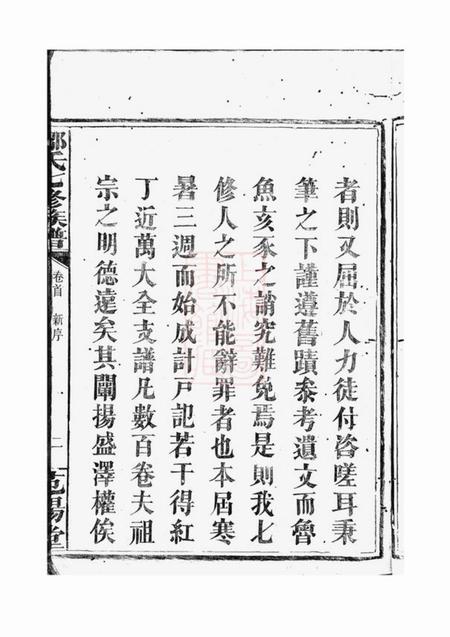 者則又屈於人力徒付咨嗟耳秉
筆之下謹遵舊蹟叅考遺文而魯
魚亥豕之誚究難免焉是則我七
修人之所不能辭罪者也本屆寒
暑三週而始成計戸記若干得紅
丁近萬大全支譜凡數百卷夫祖
宗之明德遠矣其闡揚盛澤權俟
鄒氏七修族譜
卷首 新序
二
范陽堂